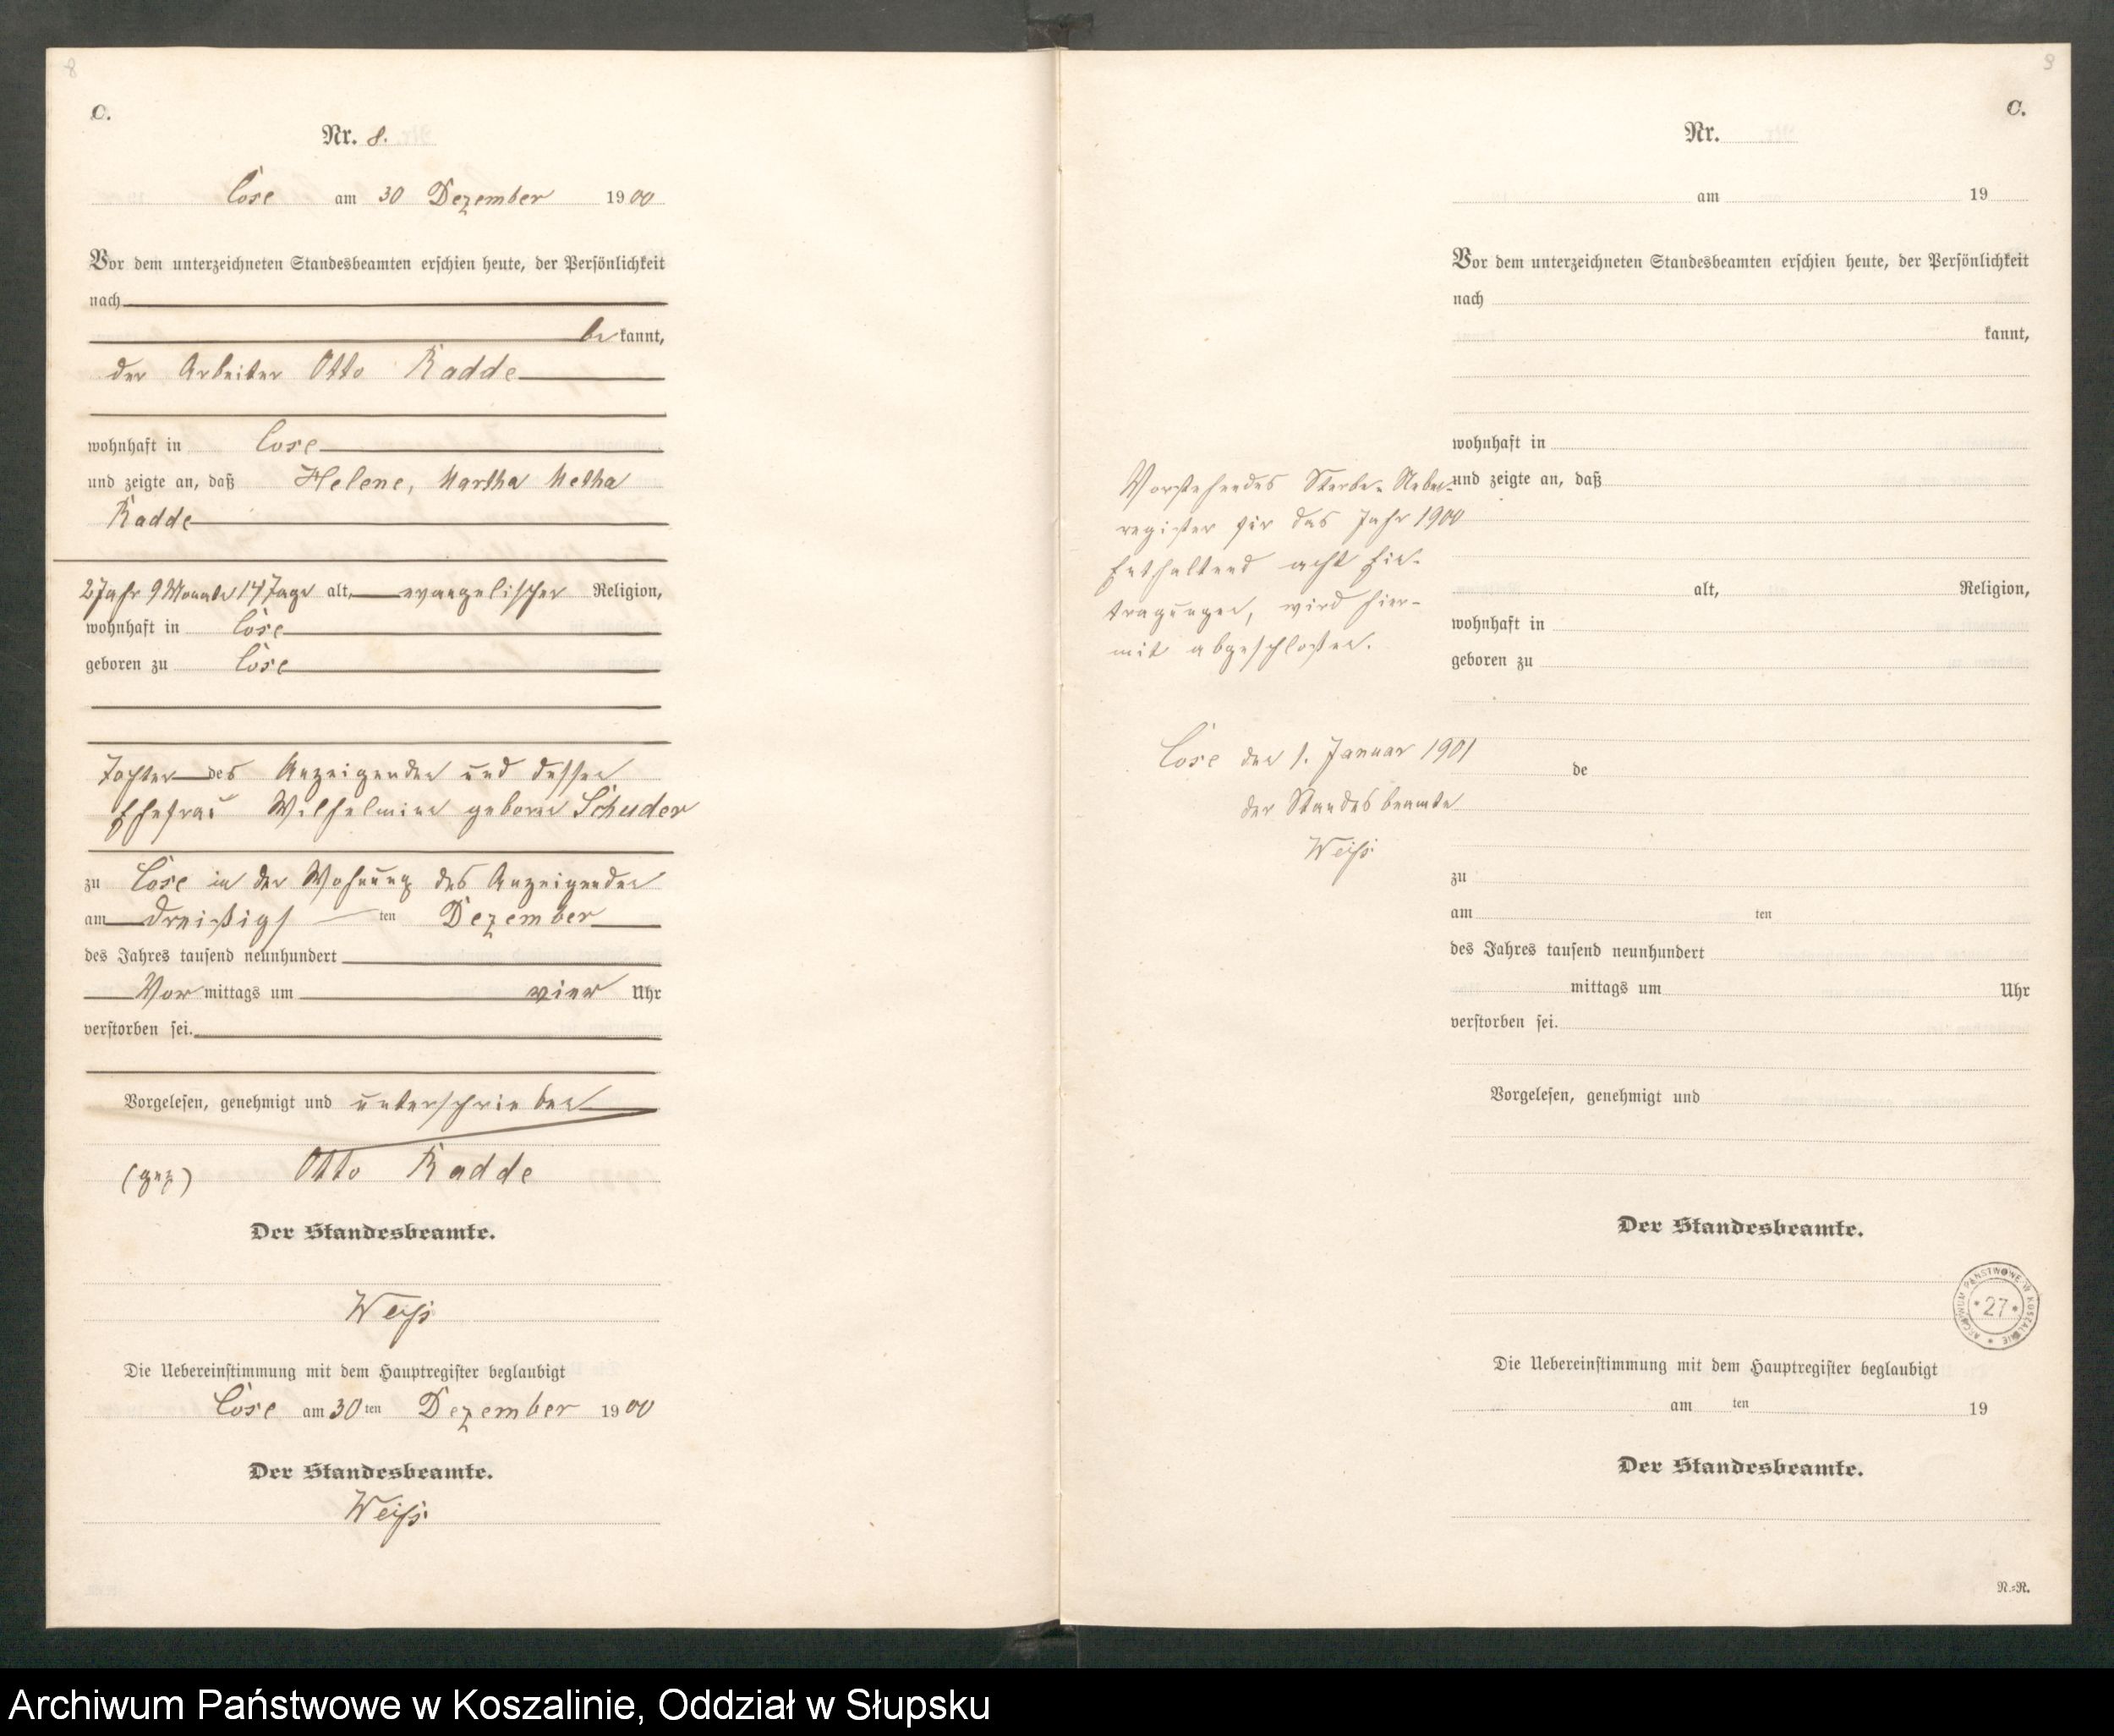 8
C.
Nr. 8.
Cose am 30 Dezember 1900
Vor dem unterzeichneten Standesbeamten erschien heute, der Persönlichkeit
nach
be kannt,
der Arbeiter Otto Radde
wohnhaft in Cose
und zeigte an, daß Helene, Martha Metha
Radde
2 Jahr 9 Monate 14 Tage alt, evangelischer Religion,
wohnhaft in Cose
geboren zu Cose
Tochter des Anzeigenden und dessen
Ehefrau Wilhelmine geborne Schuder
zu Cose in der Wohnung des Anzeigenden
am dreißigsten Dezember
des Jahres tausend neunhundert
Vor mittags um vier Uhr
verstorben sei.
Vorgelesen, genehmigt und unterschrieben
(gez) Otto Radde
Der Standesbeamte.
Weiß
Die Uebereinstimmung mit dem Hauptregister beglaubigt
Cose am 30 ten Dezember 1900
Der Standesbeamte.
Weiß
9
C.
Nr.
am 19
Vor dem unterzeichneten Standesbeamten erschien heute, der Persönlichkeit
nach
kannt,
wohnhaft in
und zeigte an, daß
alt, Religion,
wohnhaft in
geboren zu
de
zu
am ten
des Jahres tausend neunhundert
mittags um Uhr
verstorben sei.
Vorgelesen, genehmigt und
Der Standesbeamte.
Die Uebereinstimmung mit dem Hauptregister beglaubigt
am ten 19
Der Standesbeamte.
N.=R.
Vorstehendes Sterbe-Neben-
register für das Jahr 1900
Enthaltend acht Ein-
tragungen, wird hier-
mit abgeschloßen.
Cose den 1. Januar 1901
der Standesbeamte
Weiß
ARCHIWUM PAŃSTWOWE W KOSZALINIE
* 27 *
Archiwum Państwowe w Koszalinie, Oddział w Słupsku